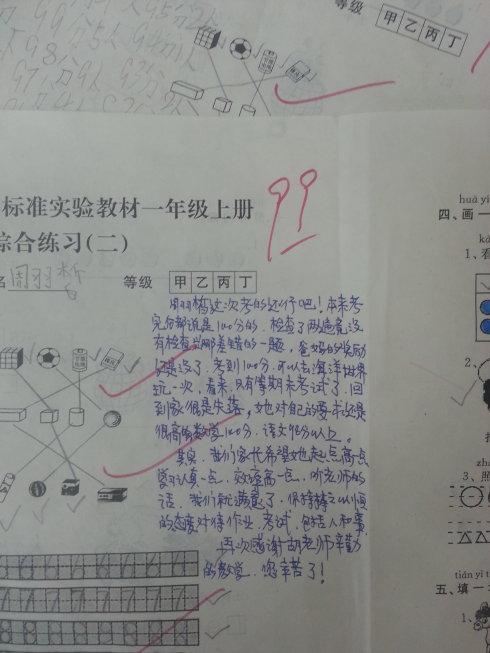 等级 甲 乙 丙 丁
99
标准实验教材一年级上册
综合练习(二)
周羽
等级 甲 乙 丙 丁
周羽 这次考的还行吧！本来考
完后都说是100分的，检查了两遍竟没
有检查出那差错的一题，爸妈的奖励
还是没了，考到100分，可以去海洋世界
玩一次，看来，只有等期末考试了，回
到家很是失落，她对自己的要求还是
很高的数学100分，语文 分以上。
其实，我们家长希望她起点高点，
学习认真一点，效率高一点，听老师的
话，我们就满意了，保持 之以恒
的态度对待作业、考试，包括人和事。
再次感谢胡老师辛勤
的教学，您辛苦了！
huà
四、画一
1、看
2、
3、
tián yī
五、填一
1、